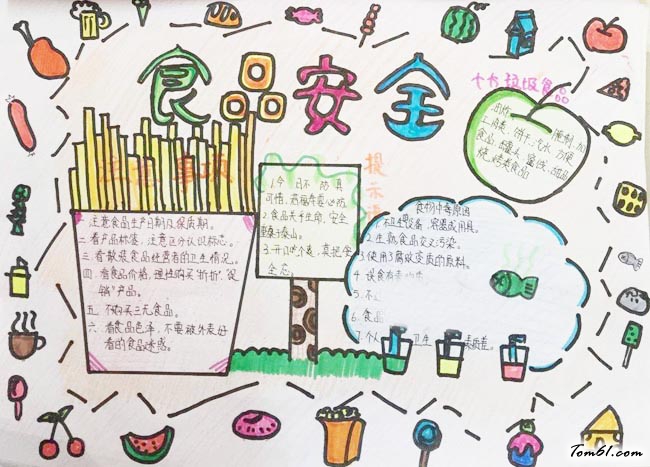 食品安全
十大垃圾食品
油炸、腌制、加
工肉类、饼干、汽水、方便
食品、罐头、蜜饯、甜品
烧烤类食品
注意事项
一 注意食品生产日期及保质期。
二 看产品标签，注意区分认识标志。
三 看散装食品经营者的卫生情况。
四 看食品价格，理性购买"折折"、"促
销"产品。
五 不购买三无食品。
六 看食品色泽，不要被外表好
看的食品迷惑。
提示语
1.今日不防具
可惜，若福年
2.食品关乎生命，安全
重于泰山。
食物中毒原因
1.卫生设备、容器或用具。
2.生熟食品交叉污染。
3.使用了腐败变质的原料。
4.误食有毒
5.不
6.食品
7.个人卫生
Tom61.com